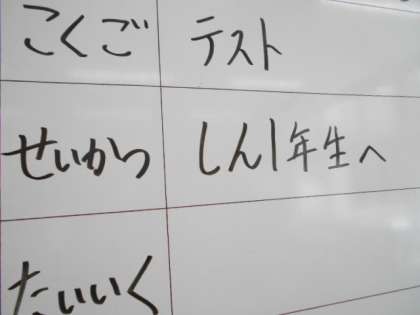 こくご テスト
せいかつ しん1年生へ
たいいく